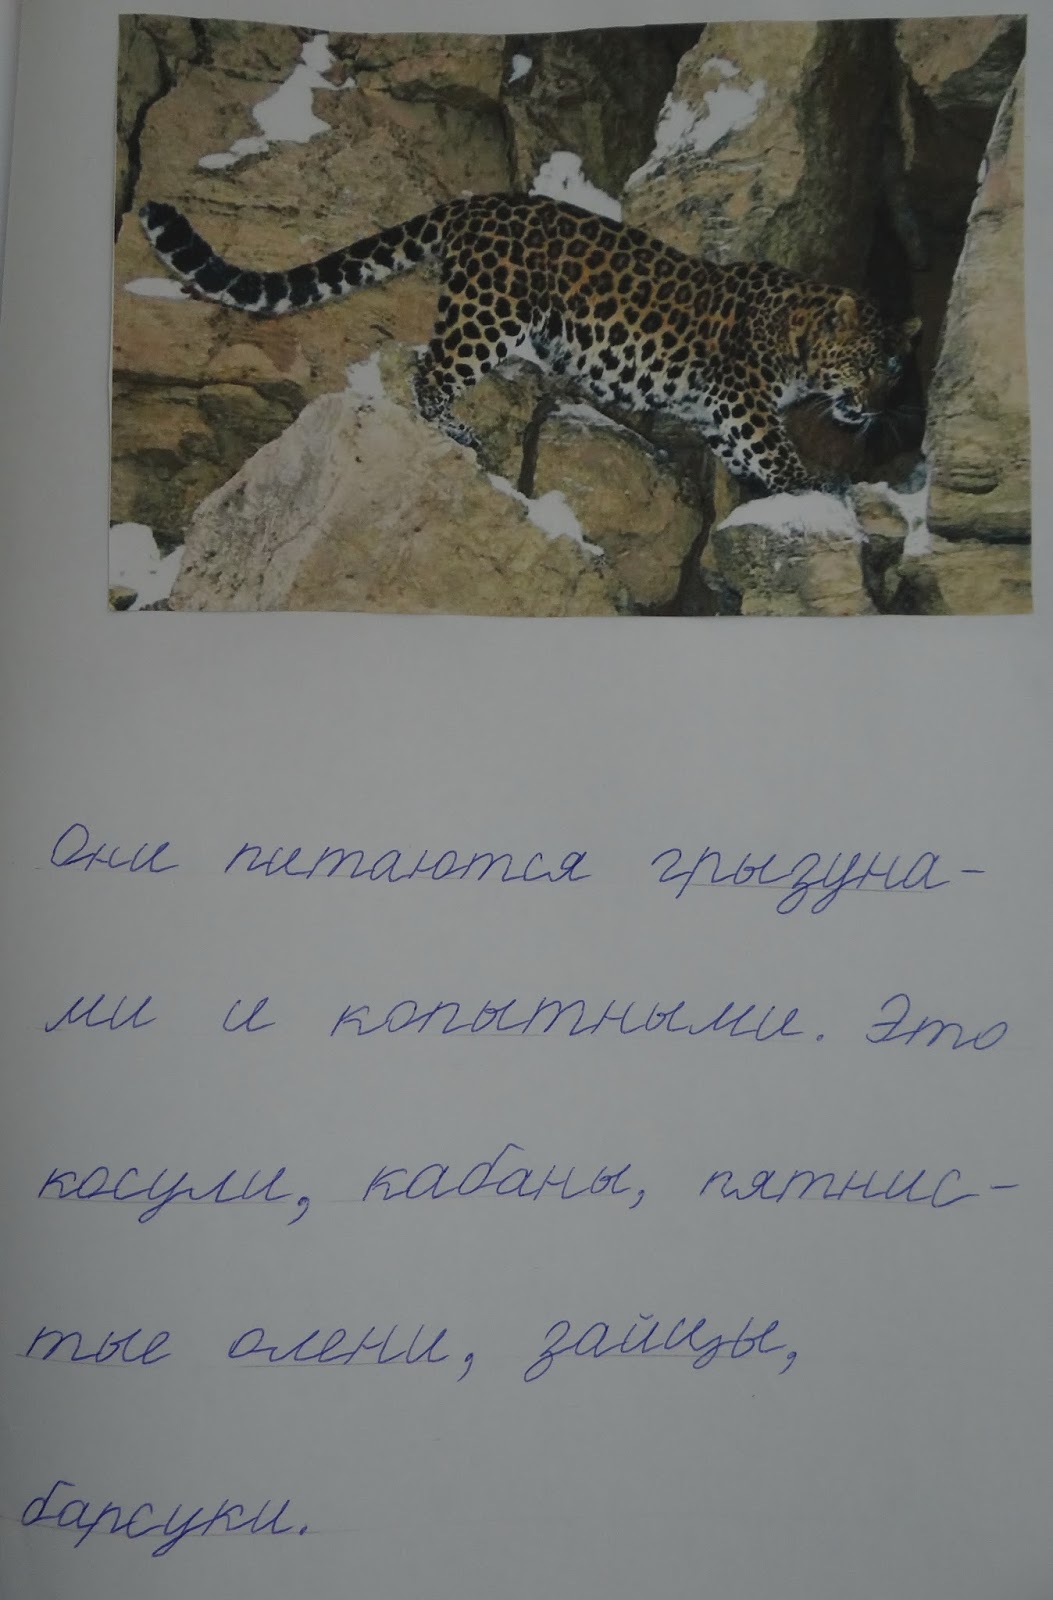 Они питаются грызуна-
ми и копытными. Это
косули, кабаны, пятнис-
тые олени, зайцы,
барсуки.